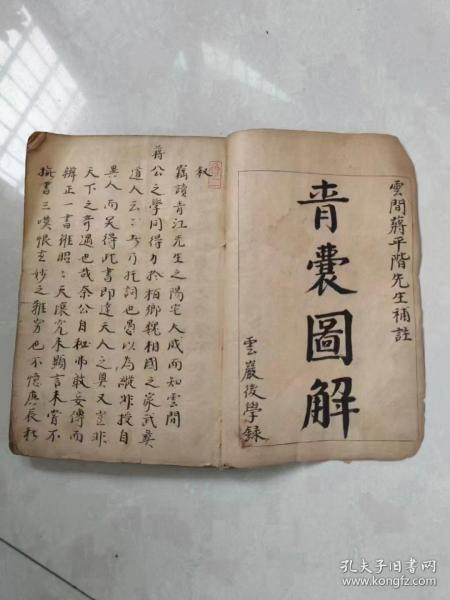 雲間蔣平階先生補註
青囊圖解
雲巖後學録
叙
竊讀青江先生之陽宅大成而知雲間
蔣
公之學同得力於栢鄉魏相國之家武夷
道人云云考乃托詞也愚以為縱非授自
異人而吴得此書即達天人之奥又豈非
天下之奇遇也哉奈公自秘弗敢妄傳而
辨正一書雖昭昭天壤究未顯言未嘗不
撫書三嘆恨玄妙之難窮也不憶庶長杉
孔夫子旧书网
www.kongfz.com